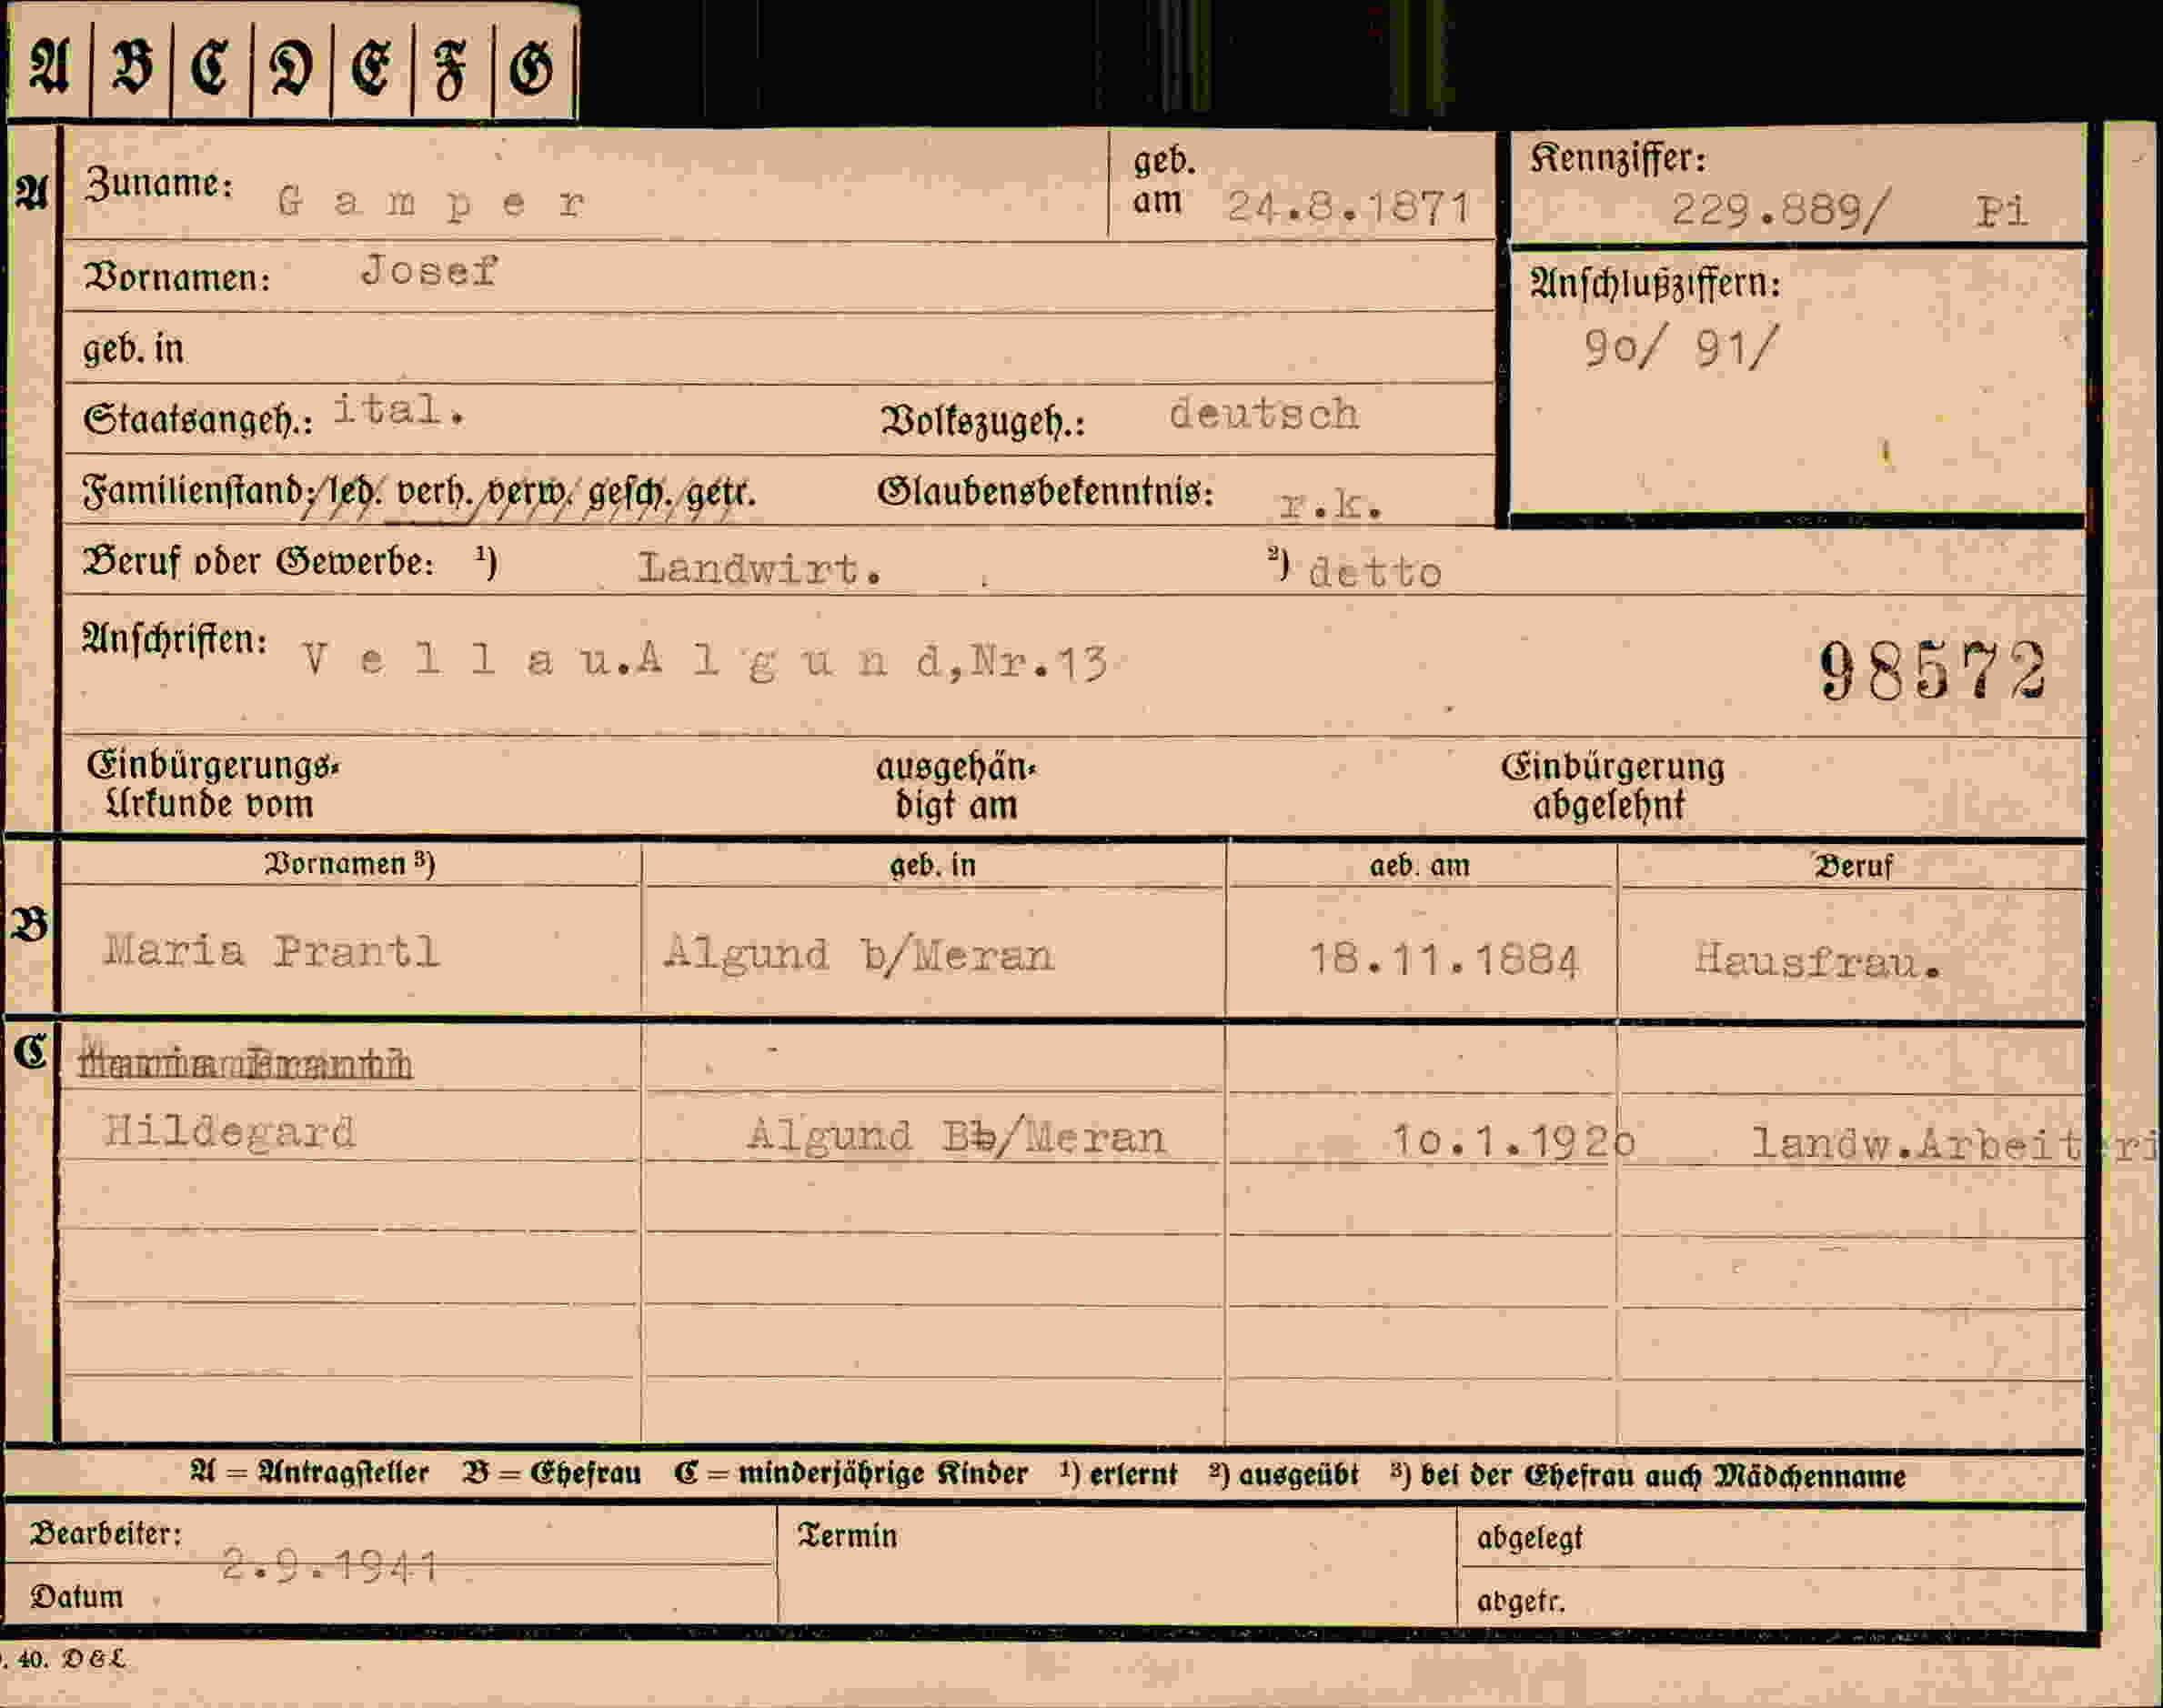 A B C D E F G
A Zuname: G a m p e r geb. am 24.8.1871 Kennziffer: 229.889/ Pi
Vornamen: Josef Anschlußziffern:
geb. in 90/ 91/
Staatsangeh.: ital. Volkszugeh.: deutsch
Familienstand: led. verh. verw. gesch. getr. Glaubensbekenntnis: r.k.
Beruf oder Gewerbe: ¹) Landwirt. ²) detto
Anschriften: V e l l a u.A l g u n d,Nr.13 98572
Einbürgerungs- ausgehän- Einbürgerung
Urkunde vom digt am abgelehnt
Vornamen ³) geb. in geb. am Beruf
B Maria Prantl Algund b/Meran 18.11.1884 Hausfrau.
C
Hildegard Algund Bb/Meran 10.1.1920 landw.Arbeiteri
A = Antragsteller B = Ehefrau C = minderjährige Kinder ¹) erlernt ²) ausgeübt ³) bei der Ehefrau auch Mädchenname
Bearbeiter: Termin abgelegt
2.9.1941
Datum abgetr.
. 40. D & L